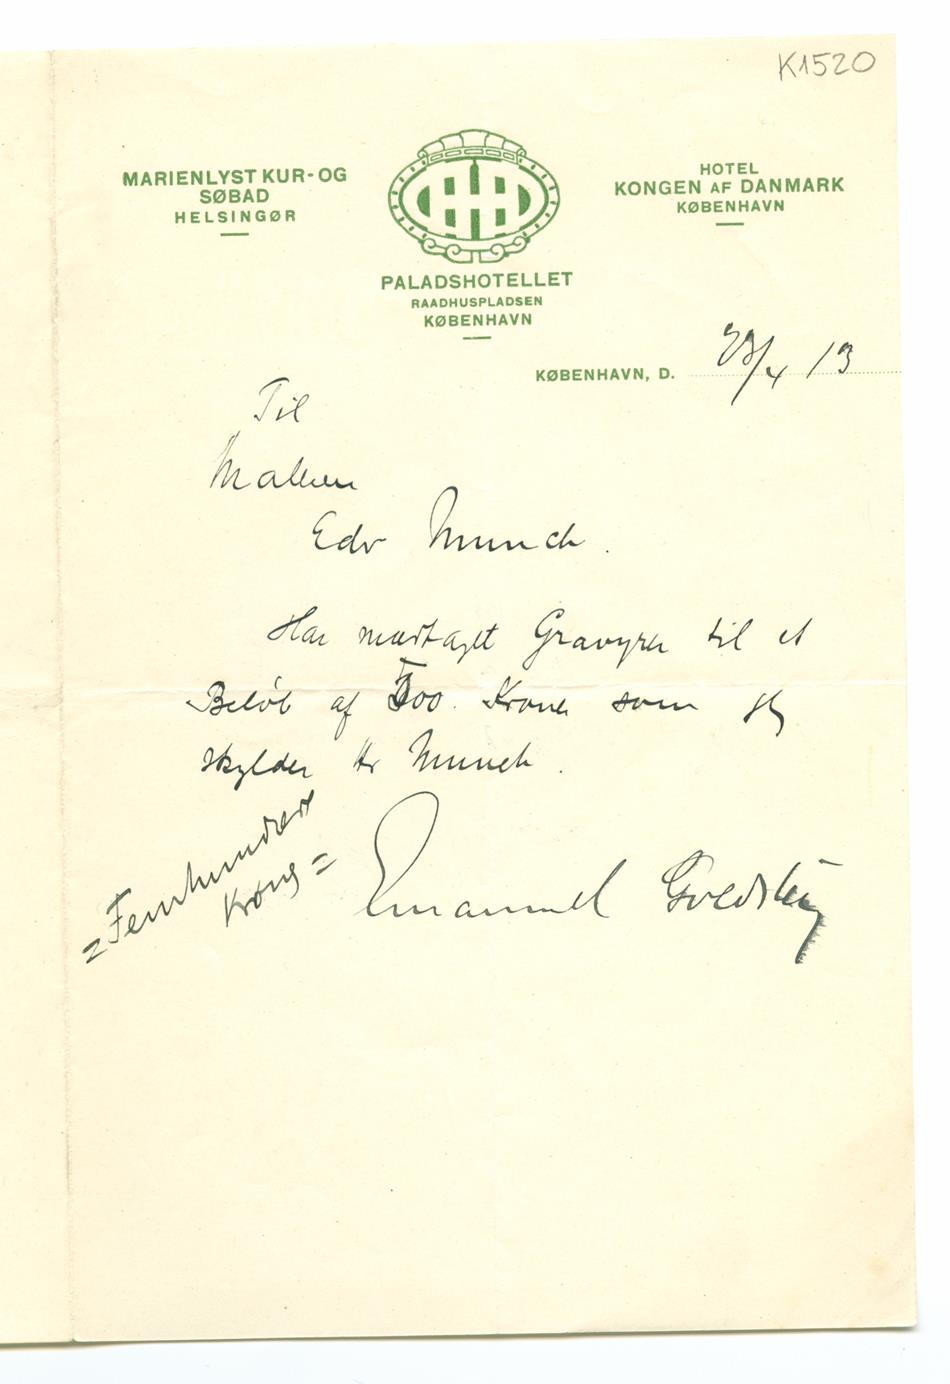 K1520
MARIENLYST KUR-OG
SØBAD
HELSINGØR
HOTEL
KONGEN AF DANMARK
KØBENHAVN
PALADSHOTELLET
RAADHUSPLADSEN
KØBENHAVN
KØBENHAVN, D. 23/4 13
Til
Maleren
Edv Munch.
Har modtaget Gravyrer til et
Beløb af 500. Kroner som jeg
skylder Hr Munch.
=Femhundrede
Kroner=
Emanuel Goldstein